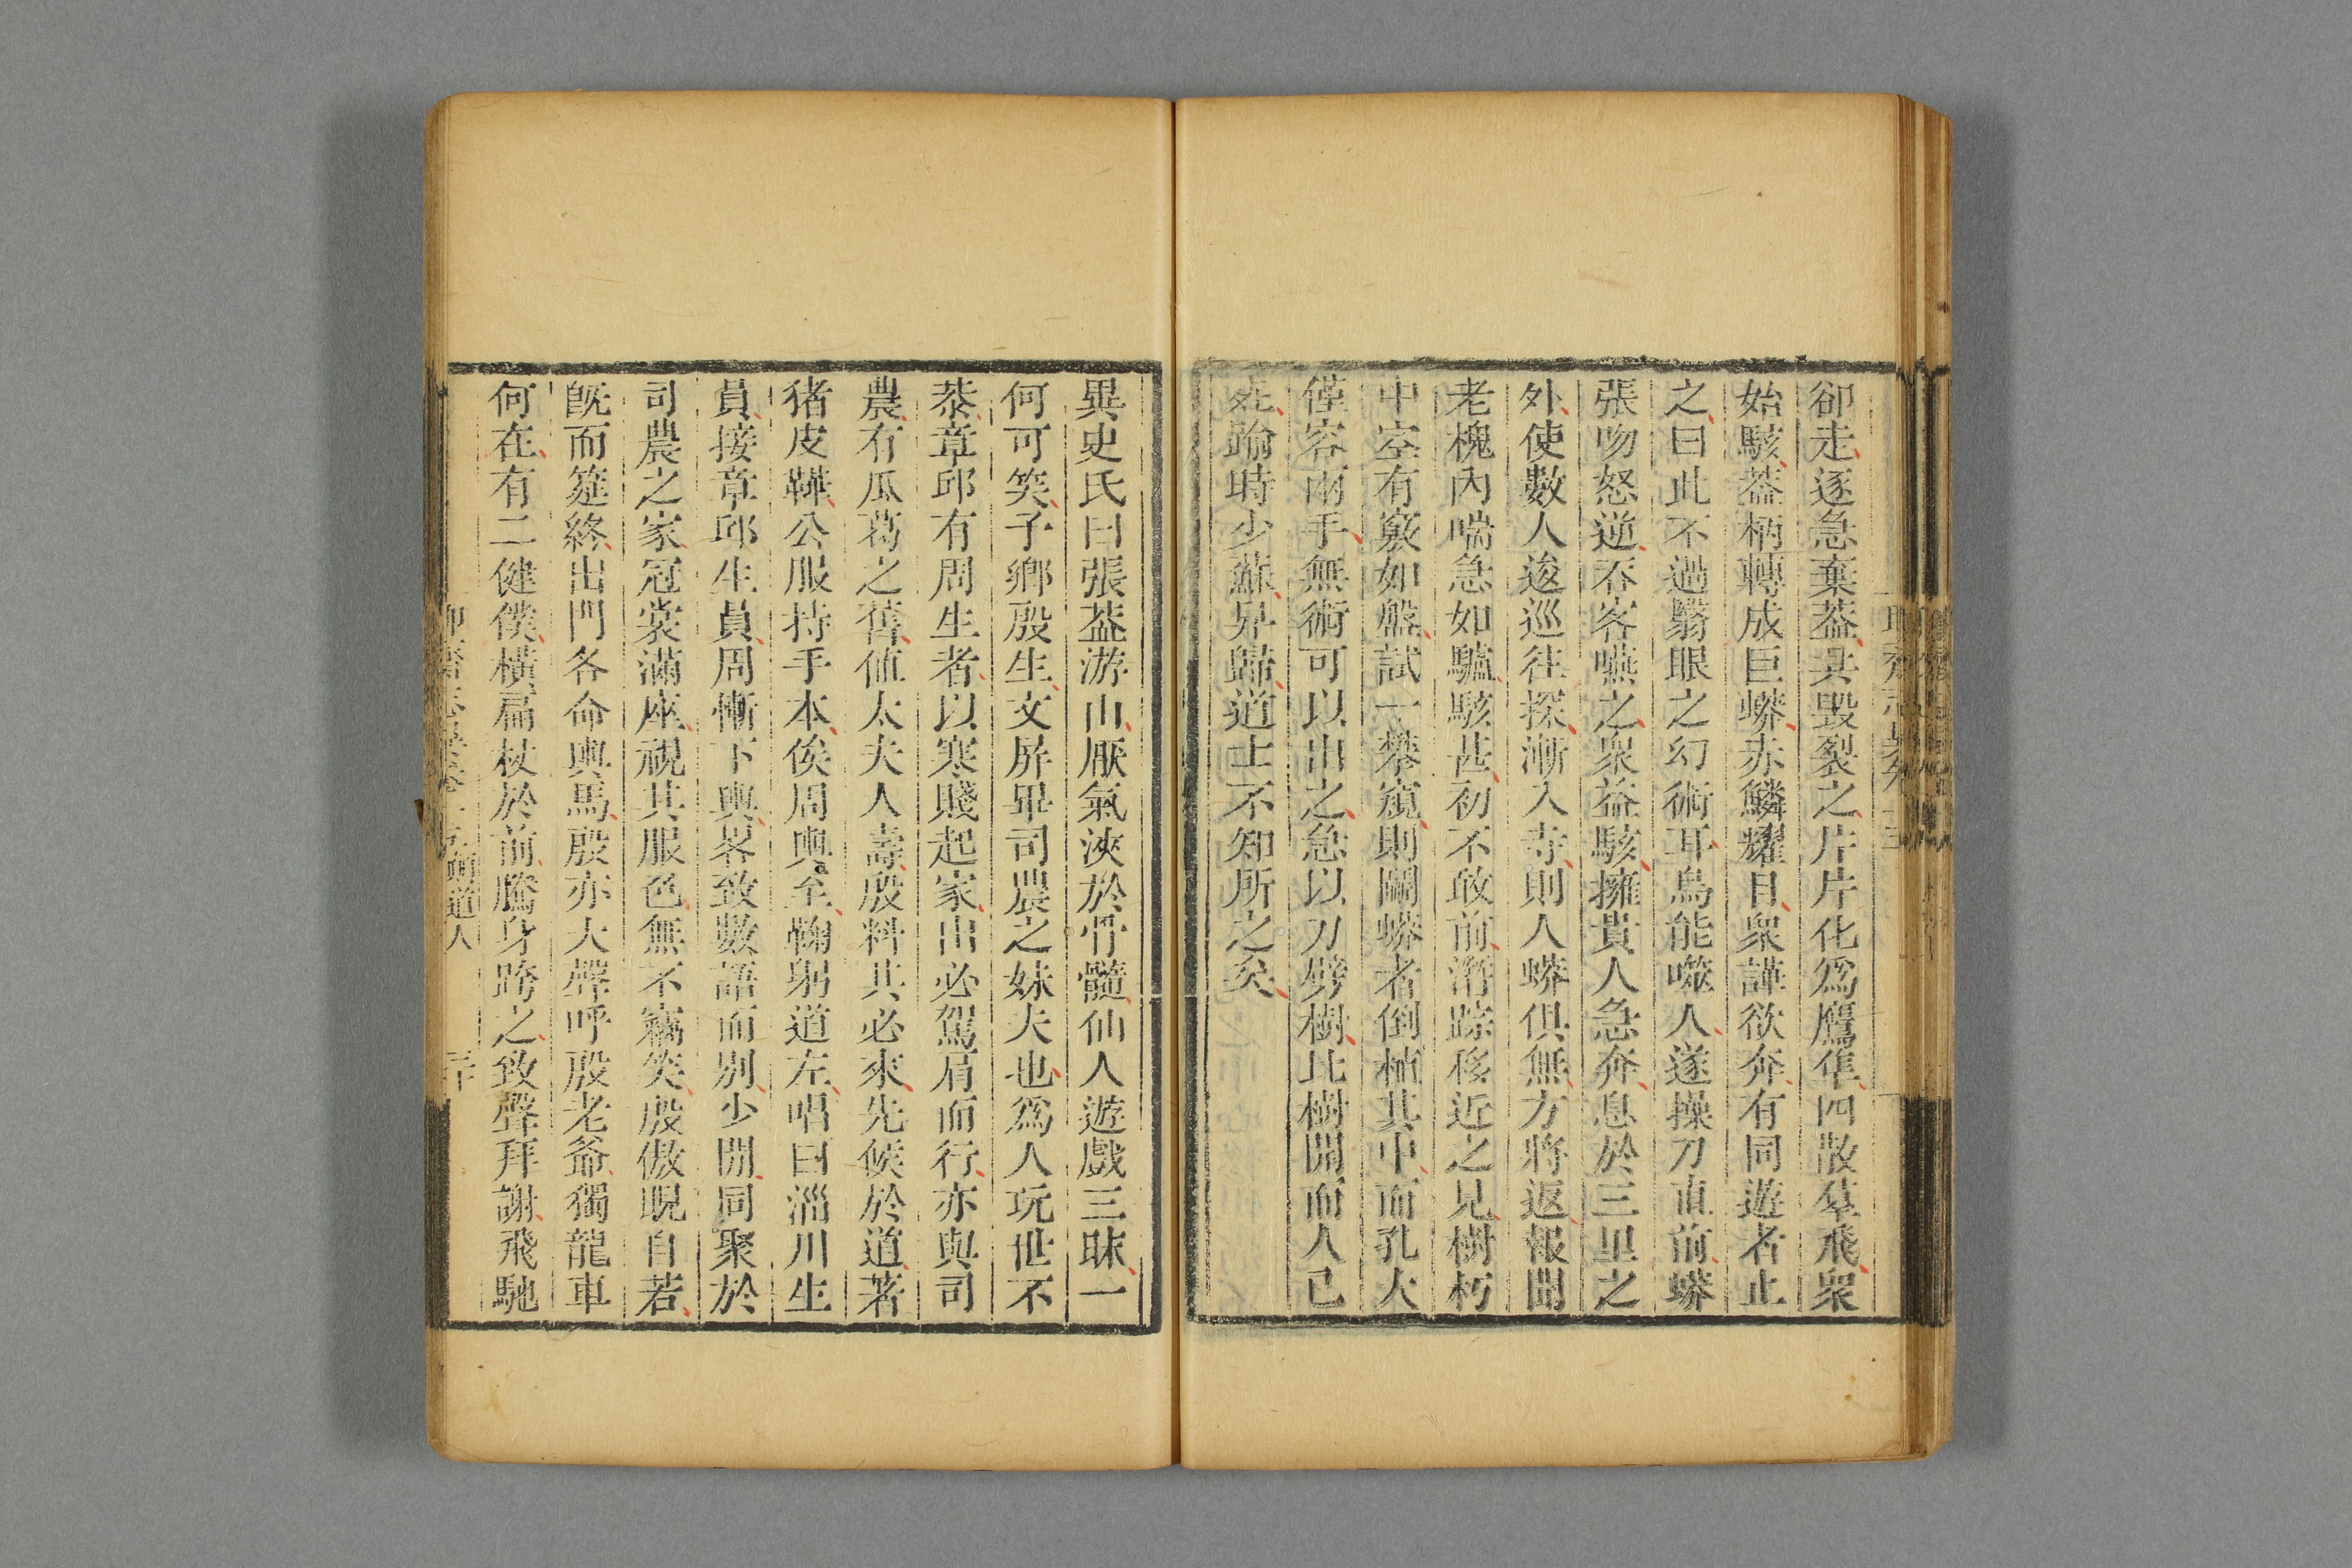 卻走逐急棄蓋共毀裂之片片化爲鷹隼四散羣飛衆
始駭葢柄轉成巨蟒赤鱗耀目衆譁欲奔有同遊者止
之曰此不過翳眼之幻術耳烏能噬人遂操刀直前蟒
張吻怒逆吞客嚥之衆益駭擁貴人急奔息於三里之
外使數人逡巡往探漸入寺則人蟒俱無方將返報聞
老槐內喘急如驢駭甚初不敢前潛踪移近之見樹朽
中空有竅如盤試一攀窺則鬭蟒者倒植其中而孔大
僅容兩手無術可以出之急以刀劈樹比樹開而人已
死踰時少蘇舁歸道士不知所之矣
異史氏曰張葢游山厭氣浹於骨髓仙人遊戲三昧一
何可笑予鄉殷生文屏畢司農之妹夫也爲人玩世不
恭章邱有周生者以寒賤起家出必駕肩而行亦與司
農有瓜葛之舊値太夫人壽殷料其必來先候於道著
猪皮鞾公服持手本俟周輿至鞠躬道左唱曰淄川生
員接章邱生員周慚下輿畧致數語而別少間同聚於
司農之家冠裳滿座視其服色無不竊笑殷傲睨自若
旣而筵終出門各命輿馬殷亦大聲呼殷老爺獨龍車
何在有二健僕橫扁杖於前騰身跨之致聲拜謝飛馳
道人